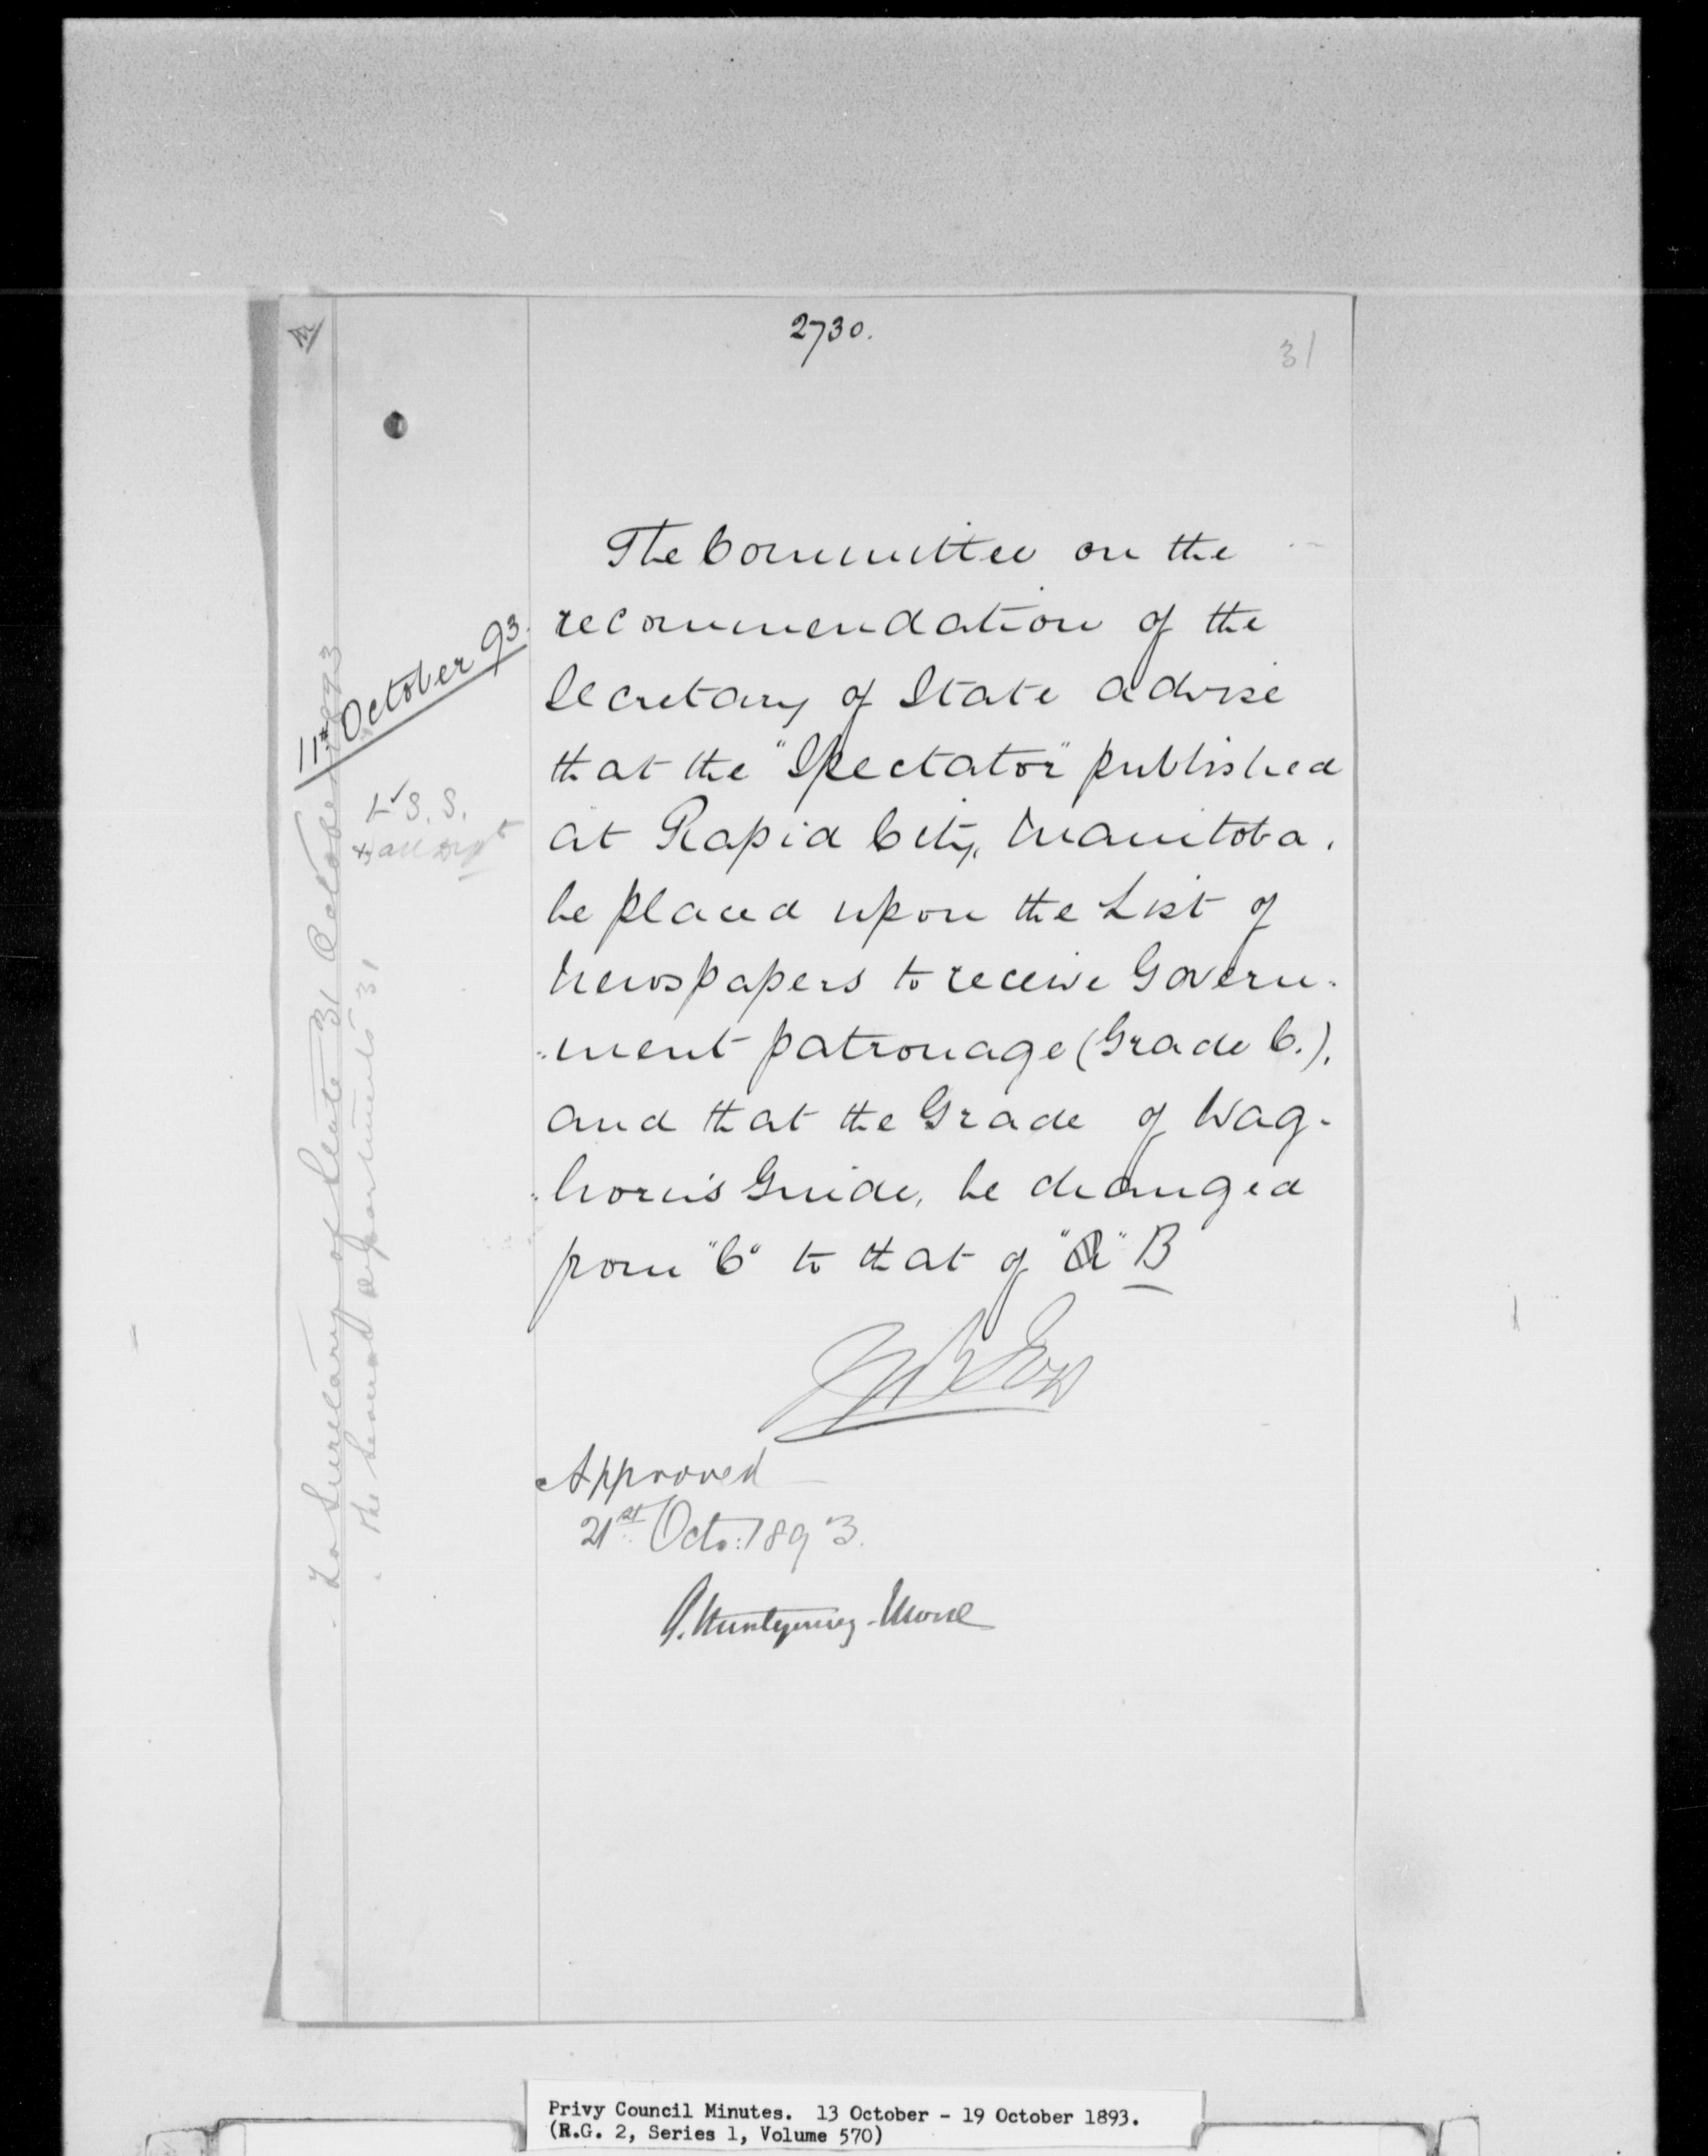 2730.
31
The Committee on the
recommendation of the
Secretary of State advise
that the "Spectator" published
at Rapid City, Manitoba,
be placed upon the List of
Newspapers to receive Govern-
ment patronage (Grade C.),
and that the Grade of Wag-
horn's Guide, be changed
from "C" to that of "A" B
Approved
21st Octo: 1893.
11th October 93.
S. S.
To Secretary of State 31 October 1893
" the several departments 31
Privy Council Minutes. 13 October - 19 October 1893.
(R.G. 2, Series 1, Volume 570)